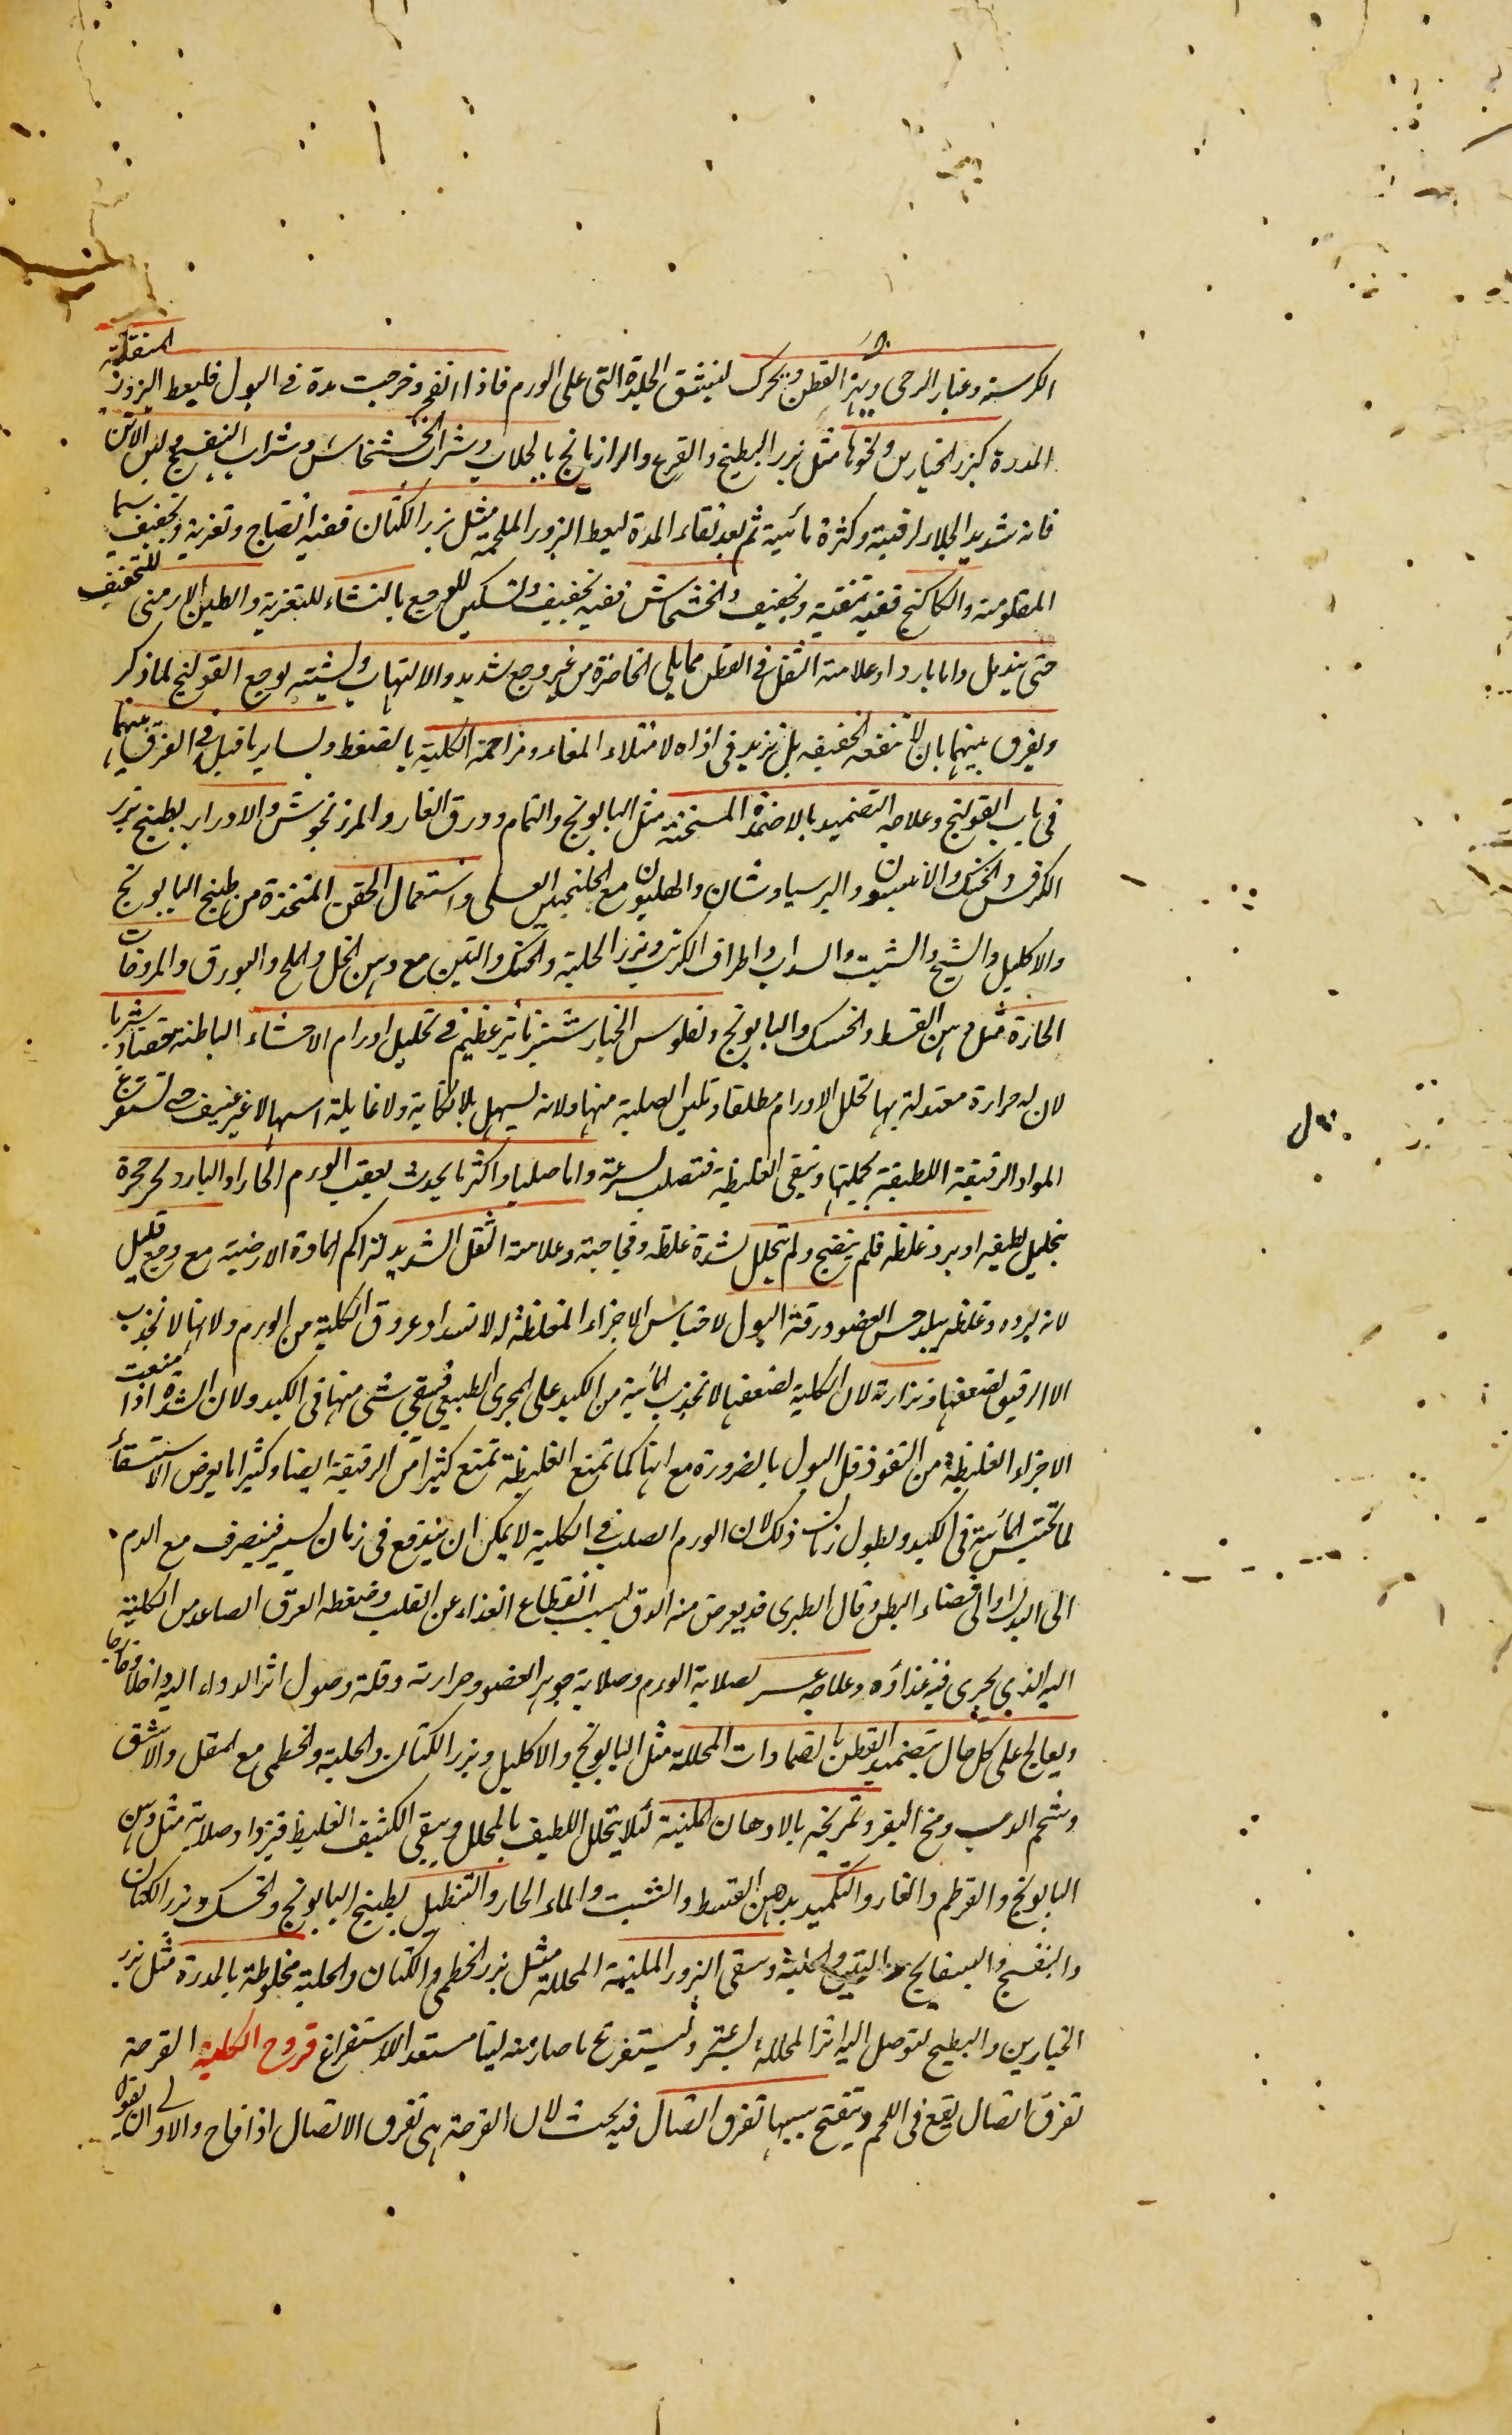 الكرسنه وغبار الرحى ويهز القطن ويحرك لينشق الجلدة التى على الورم فاذا انفجر وخرجت مدة فى البول فليعط البزور المنقية
المدرة كبزر الخيارين ونحوها مثل بزر البطيخ والقرع والرازيانج بالجلاب وشراب الخشخاش وشراب البنفسج ولبن الاتن
فانه شديد الجلاء لرقيته وكثرة مائية ثم بعد نقاء المدة ليعط البزور الملحمة مثل بزر الكتان ففيه انضاج وتغرية وتجفيف سيما
المقلو منه والكاكنج ففيه تنقية وتجفيف والخشخاش ففيه تجفيف وتسكين للوجع بالنشاء للتغرية والطين الارمنى للتجفيف
حتى يندمل واما باردا وعلامته الثقل فى القطن مما يلى الخاصرة من غير وجع شديد والالتهاب ويشبه لوجع القولنج لما ذكر
ويفرق بينهما بان لا تنفعه الحقنة بل تزيد فى اذاه لامتلاء المعاء ومزاحمة الكلية بالضغط وبساير ما قيل فى الفرق بينهما
فى باب القولنج وعلاجه التضميد بالاضمدة المسخنة مثل البابونج والنمام وورق الغار والمرزنجوش والادرار بطبيخ بزر
الكرفس والخسك والانيسون والبرسياوشان والهليون مع الجلنجبين العسلى واستعمال الحقن المتخذة من طبيخ البابونج
والاكليل والشيح والشبت والسداب واطراف الكرنب وبزر الحلبة والخسك والتين مع دهن الخل والملح والبورق والمروخات
الحارة مثل دهن القسط والخسك والبابونج ولفلوس الخيار شنبر تاثير عظيم فى تحليل اورام الاحشاء الباطنة ضمادا وشربا
لان له حرارة معتدلة بها تحلل الاورام مطلقا وتلين الصلبة منها ولانه يسهل بلا نكاية ولا غايلة اسهالا غير عنيف حتى تستفرغ
المواد الرقيقة اللطيفة بكليتها وتبقى الغليظة فتصلب بسرعة واما صلبا واكثر ما يحدث بعقب الورم الحار او البارد لحر حجره
بتحليل لطيفه او برد غلظه فلم ينضج ولم يتحلل لشدة غلظه وفجاجته وعلامته الثقل الشديد لتراكم المادة الارضية مع وجع قليل
لانه لبرده وغلظه يبلد حس العضو ورقة البول لاحتباس الاجزاء المغلظة له لانسداد عروق الكلية من الورم ولانها لا تجذب
الا الرقيق لضعفها ونزارته لان الكلية لضعفها لا تجذب المائية من الكبد على المجرى الطبيعى فيبقى شى منها فى الكبد ولان السدة اذا منعت
الاجزاء الغليظة من النفوذ قل البول بالضرورة مع انها كما تمنع الغليظة تمنع كثيرا من الرقيقة ايضا وكثيرا ما يعرض الاستسقاء
لما تحتبس المائية فى الكبد ولطول زمان ذلك لان الورم الصلب فى الكلية لا يمكن ان يندفع فى زمان يسير فينصرف مع الدم
الى البدن او الى فضاء البطن وقال الطبرى قد يعرض منه الدق لسبب انقطاع الغذاء عن القلب وضغطه العرق الصاعد من الكلية
اليه الذي يجرى فيه غذاؤه وعلاجه عسر لصلابة الورم وصلابة جوهر العضو وحرارته وقلة وصول اثر الدواء اليه داخلا وخارجا
ويعالج على كل حال بتضميد القطن بالضمادات المحللة مثل البابونج والاكليل وبزر الكتان والحلبة والخطمى مع المقل والاشق
وشحم الدب ومخ البقر وتمريخه بالادهان الملينة لئلا يتحلل اللطيف بالمحلل ويبقى الكثيف الغليظ فيزداد صلابة مثل دهن
البابونج والقرطم والغار والتكميد بدهن القسط والشبت والماء الحار والتنطيل بطبيخ البابونج والخسك وبزر الكتان
والبنفسج والبسفايج والتين والحلبة وسقى البزور الملينة المحللة مثل بزر الخطمى والكتان والحلبة مخلوطة بالمدرة مثل بزر
الخيارين والبطيخ لتوصل اليه اثر المحللة بسرعة وليستفرغ ما صار منه لينا مستعدا للاستفراغ قروح الكلية القرحة
تفرق اتصال يقع فى اللحم ويتقيح سببها تفرق اتصال فيه بحث لان القرحة هى تفرق الاتصال اذا قاح والاولى ان يقول